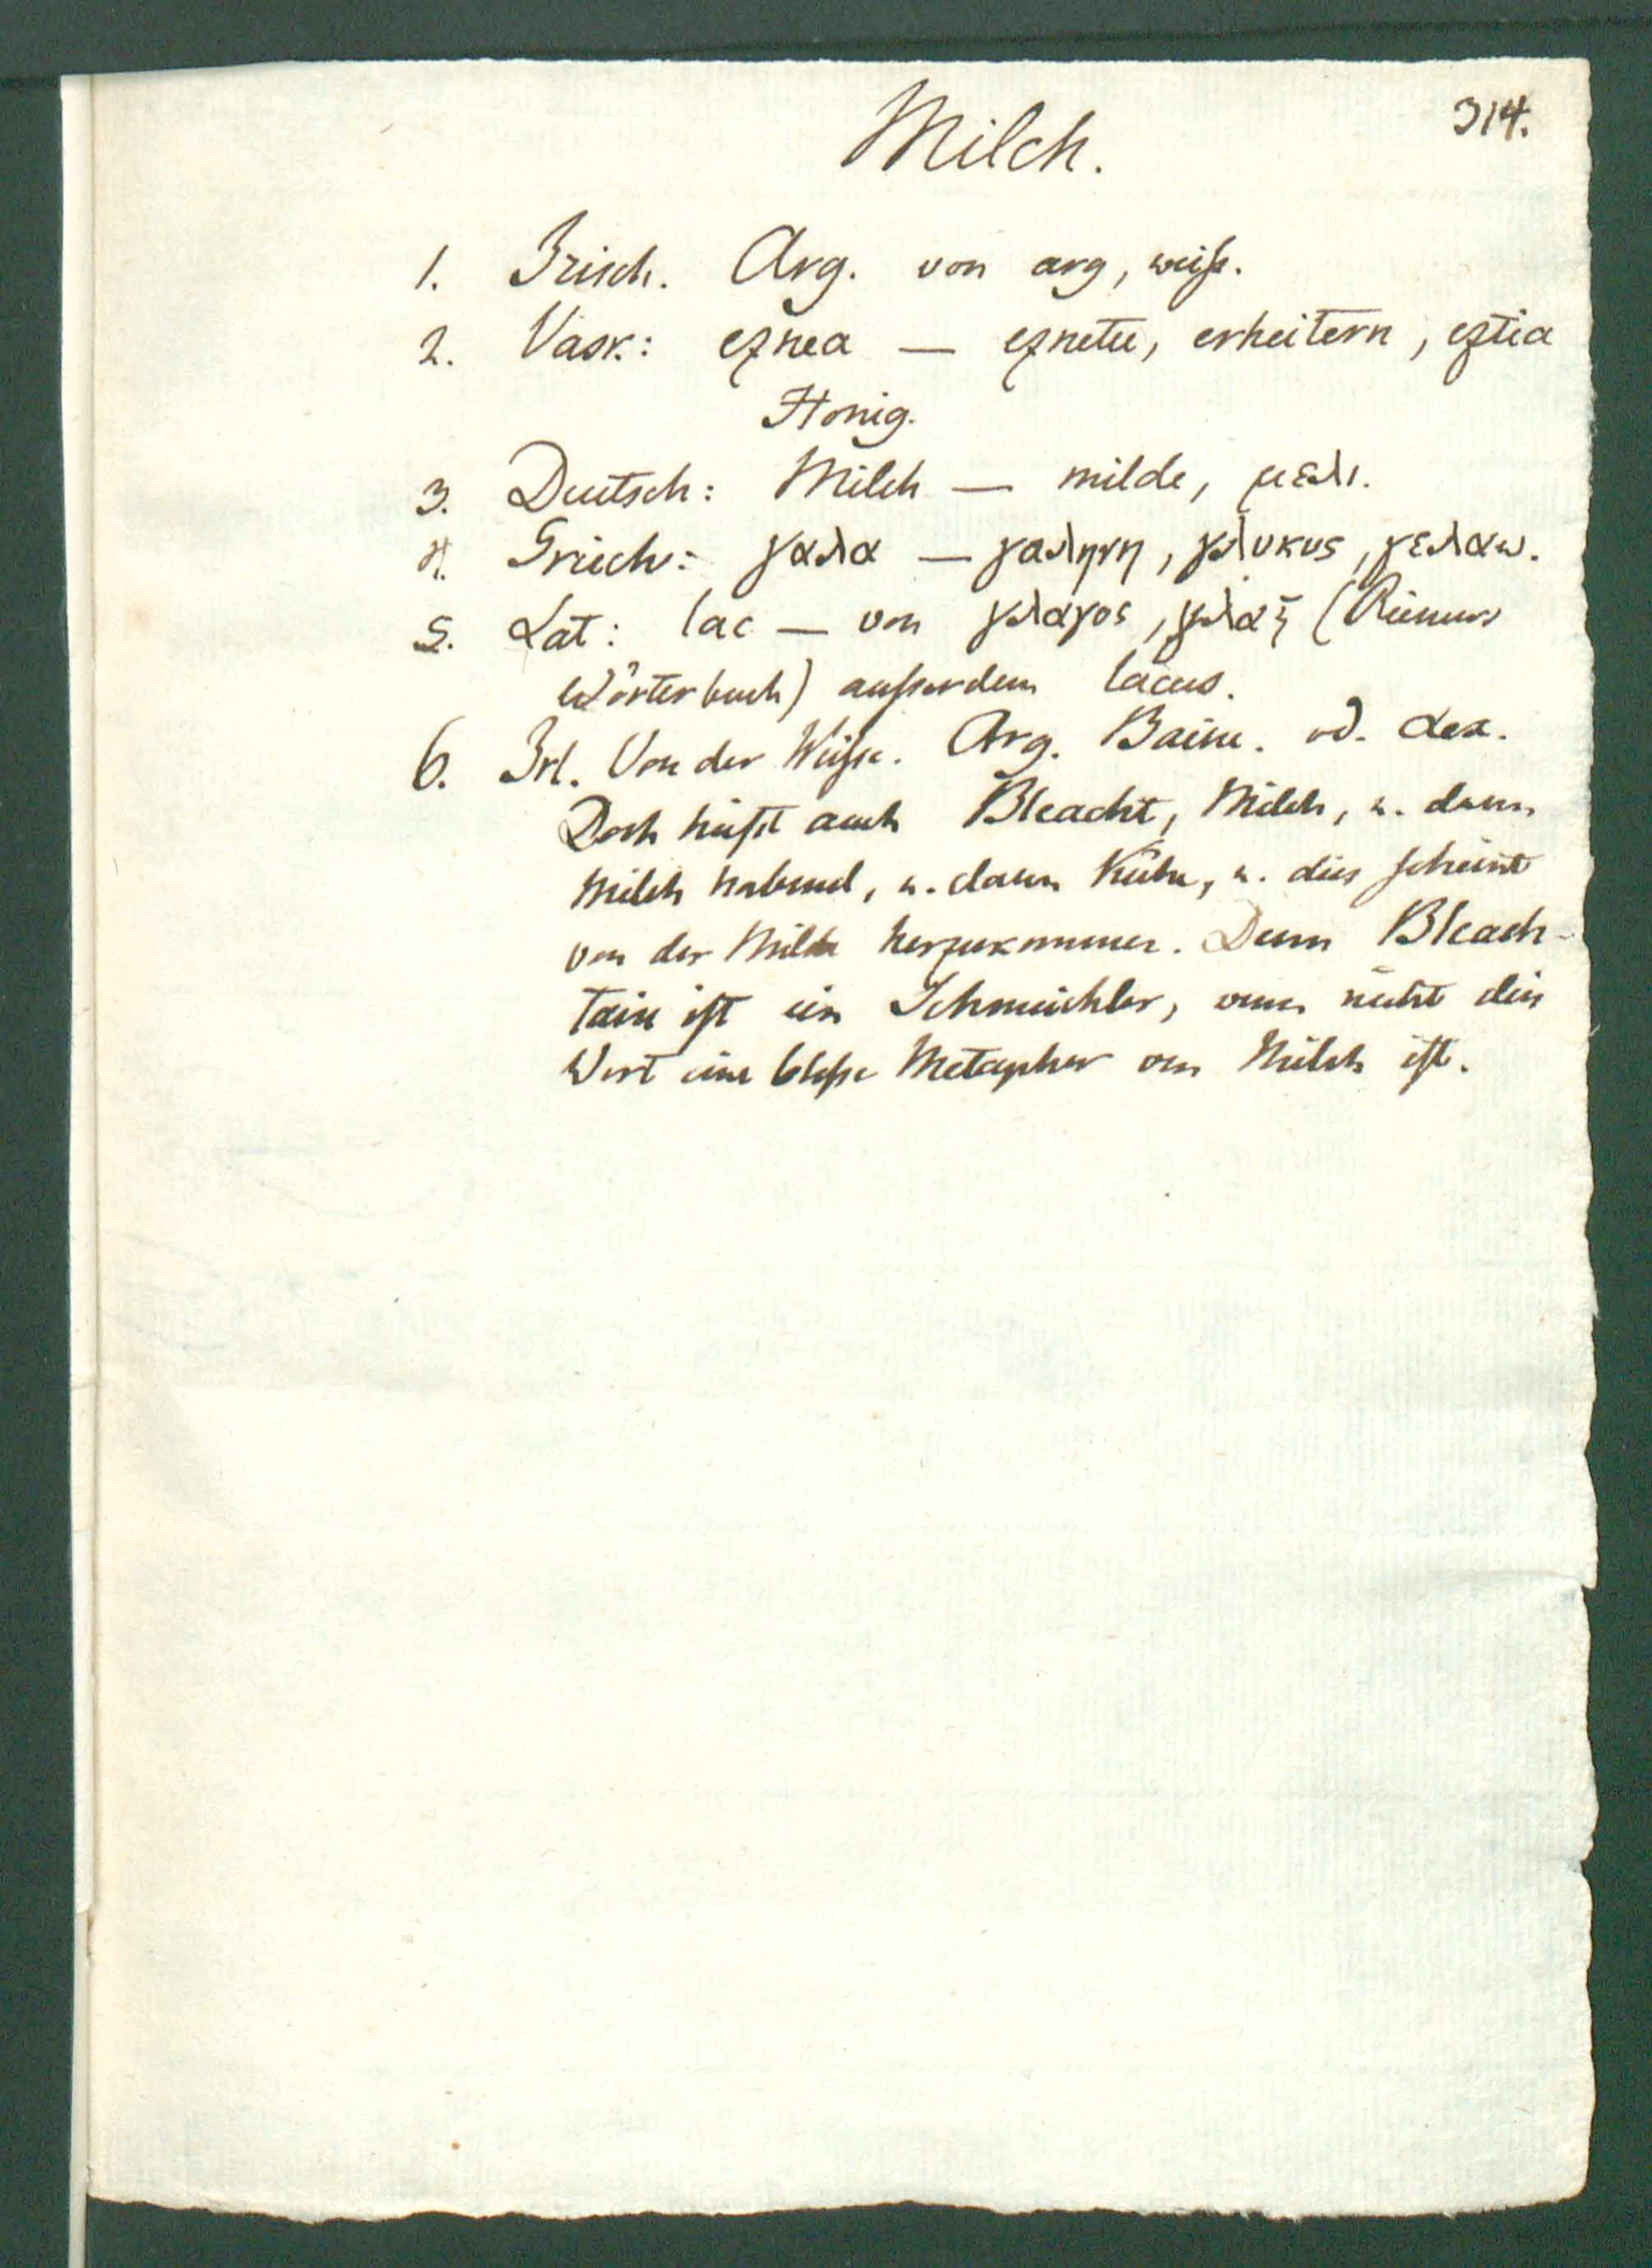 314.
Milch.
1. Irisch. Arg. von arg, weiß.
2. Vask.: eznea — eznetu, erheitern, eztia
Honig.
3. Deutsch: Milch — milde, μελι.
4. Griech: γαλα — γαληνη, γλυκυς, γελαω.
5. Lat: lac — von γλαγος, γλαξ (Riemers
Wörterbuch) außerdem lacus.
6. Irl. Von der Weiße. Arg. Baine. od.
Doch heißt auch Bleacht, Milch, u. dann
Milch habend, u. dann Kühe, u. dies scheint
von der Milde herzukommen. Denn Bleach-
tair ist ein Schmeichler, wenn nicht dies
Wort eine bloße Metapher von Milch ist.